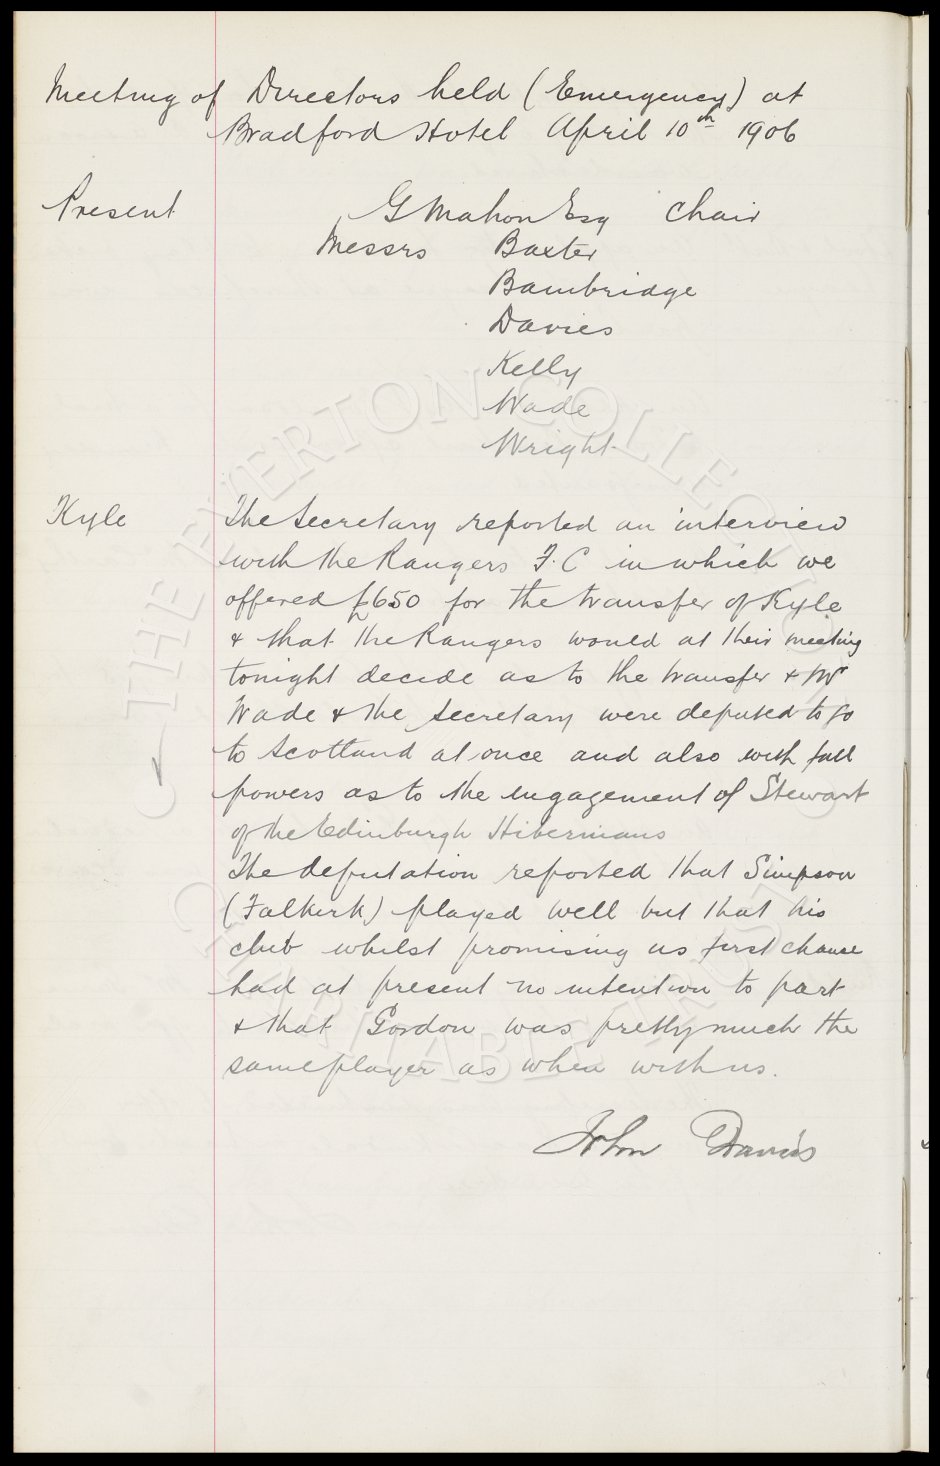 Meeting of Directors held (Emergency) at
Bradford Hotel April 10th 1906
Present G Mahon Esq Chair
Messrs Baxter
Bainbridge
Davies
Kelly
Wade
Wright
Kyle The Secretary reported an interview
with the Rangers F.C in which we
offered £650 for the transfer of Kyle
& that the Rangers would at their meeting
tonight decide as to the transfer & Mr
Wade & the Secretary were deputed to go
to Scotland at once and also with full
powers as to the engagement of Stewart
of the Edinburgh Hibernians
The deputation reported that Simpson
(Falkirk) played well but that his
club whilst promising us first chance
had at present no intention to part
& that Gordon was pretty much the
same player as when with us.
John Davies
© THE EVERTON COLLECTION
CHARITABLE TRUST